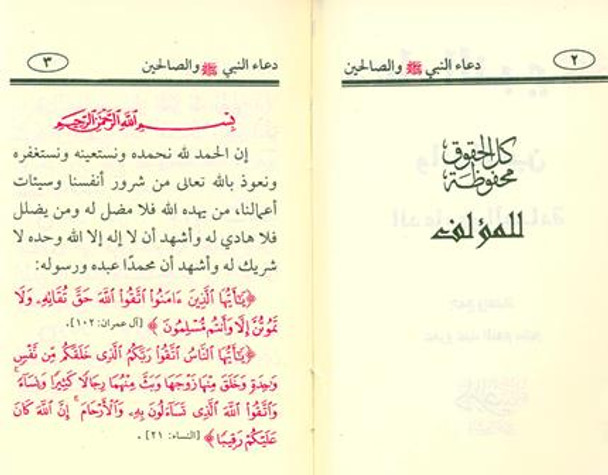 ٢
دعاء النبي ﷺ والصالحين
كل الحقوق
محفوظة
للمؤلف
دعاء النبي ﷺ والصالحين
٣
بِسْمِ اللَّهِ الرَّحْمَنِ الرَّحِيمِ
إن الحمد لله نحمده ونستعينه ونستغفره
ونعوذ بالله تعالى من شرور أنفسنا وسيئات
أعمالنا، من يهده الله فلا مضل له ومن يضلل
فلا هادي له وأشهد أن لا إله إلا الله وحده لا
شريك له وأشهد أن محمدًا عبده ورسوله:
﴿يَٰٓأَيُّهَا الَّذِينَ ءَامَنُوا اتَّقُوا اللَّهَ حَقَّ تُقَائِهِۦ وَلَا
تَمُوتُنَّ إِلَّا وَأَنتُم مُّسْلِمُونَ﴾ [آل عمران: ١٠٢].
﴿يَٰٓأَيُّهَا النَّاسُ اتَّقُوا رَبَّكُمُ الَّذِى خَلَقَكُم مِّن نَّفْسٍ
وَٰحِدَةٍ وَخَلَقَ مِنْهَا زَوْجَهَا وَبَثَّ مِنْهُمَا رِجَالًا كَثِيرًا وَنِسَآءً ۚ
وَاتَّقُوا اللَّهَ الَّذِى تَسَآءَلُونَ بِهِۦ وَالْأَرْحَامَ ۚ إِنَّ اللَّهَ كَانَ
عَلَيْكُمْ رَقِيبًا﴾ [النساء: ٢١].